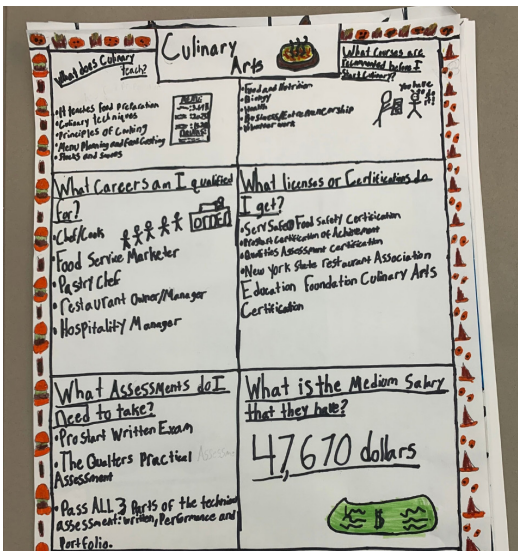 Culinary
Arts
What does Culinary
teach?
•It teaches Food Preparation
•Culinary techniques
•Principles of Cooking
•Menu Planning and Food Costing
•Stocks and Sauces
What Courses are
recommended before I
Start Culinary?
•Food and Nutrition
•Biology
•Health
•Business/Entrepreneurship
•Volunteer work
What Careers am I qualified
for?
•Chef/Cook
ORDER
•Food Service Marketer
•Pastry Chef
•restaurant Owner/Manager
•Hospitality Manager
What licenses or Certifications do
I get?
•ServSafe® Food Safety Certification
•Prostart Certification of Achievement
•Qualities Assessment Certification
•New York State restaurant Association
Education Foundation Culinary Arts
Certification
What Assessments do I
need to take?
•ProStart Written Exam
•The Qualters Practical
Assessment
•Pass ALL 3 Parts of the technical
assessment: written, Performance and
Portfolio.
What is the Medium Salary
that they have?
47,670 dollars
$